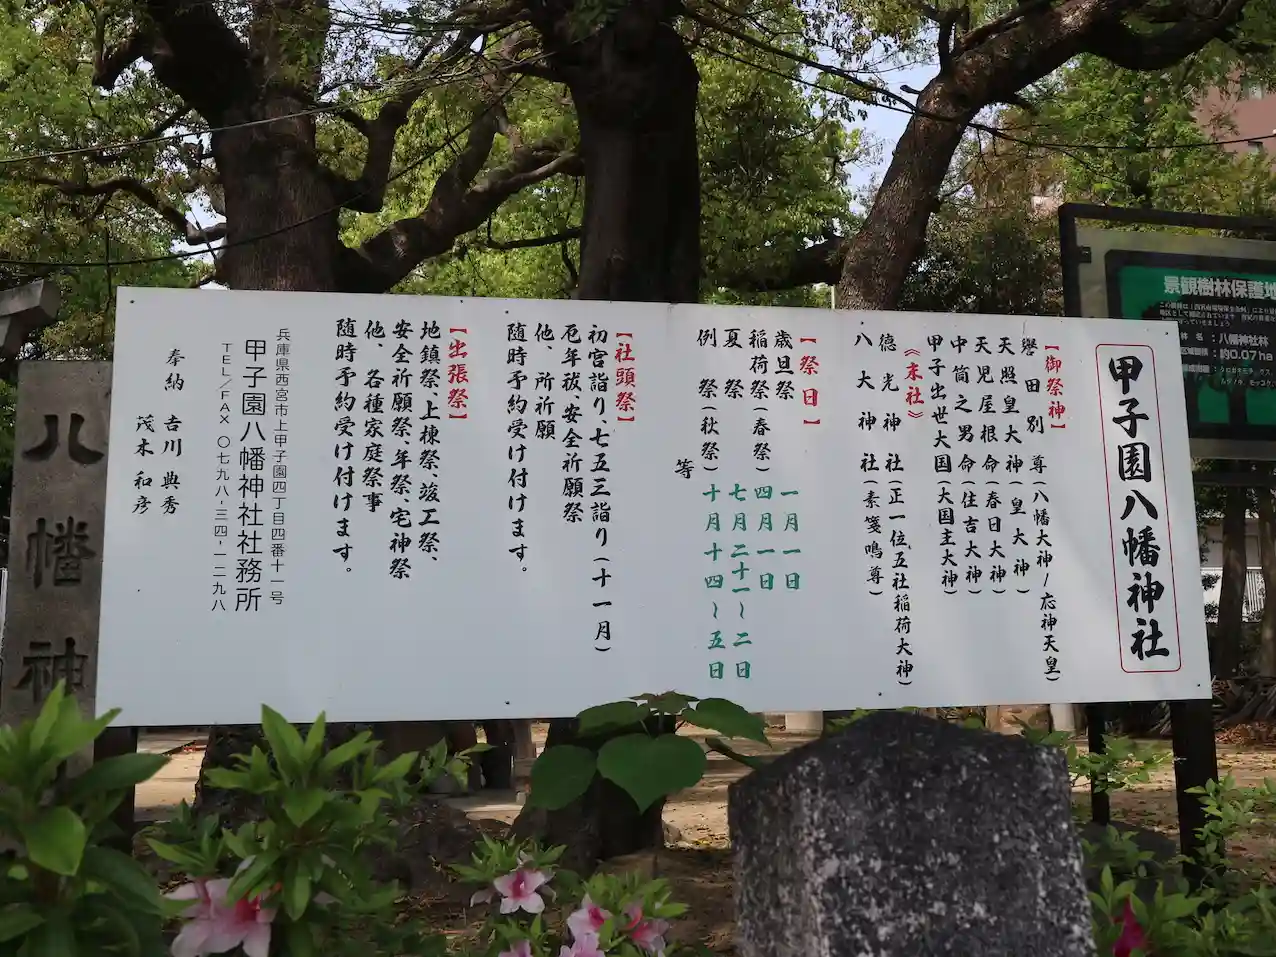 甲子園八幡神社
【御祭神】
譽田別尊(八幡大神/応神天皇)
天照皇大神(皇大神)
天児屋根命(春日大神)
中筒之男命(住吉大神)
甲子出世大国(大国主大神)
《末社》
徳光神社(正一位、五社稲荷大神)
八大神社(素箋鳴尊)
【祭日】
歳旦祭 一月一日
稲荷祭(春祭)四月一日
夏祭 七月二十一~二日
例祭(秋祭)十月十四~五日
等
【社頭祭】
初宮詣り、七五三詣り(十一月)
厄年祓、安全祈願祭
他、所祈願
随時予約受け付けます。
【出張祭】
地鎮祭、上棟祭、竣工祭、
安全祈願祭、年祭、宅神祭
他、各種家庭祭事
随時予約受け付けます。
兵庫県西宮市上甲子園四丁目四番十一号
甲子園八幡神社社務所
TEL/FAX 〇七九八-三四-一二九八
奉納 吉川典秀
茂木和彦
八幡神
景観樹林保護地
:八幡神社林
:約0.07ha